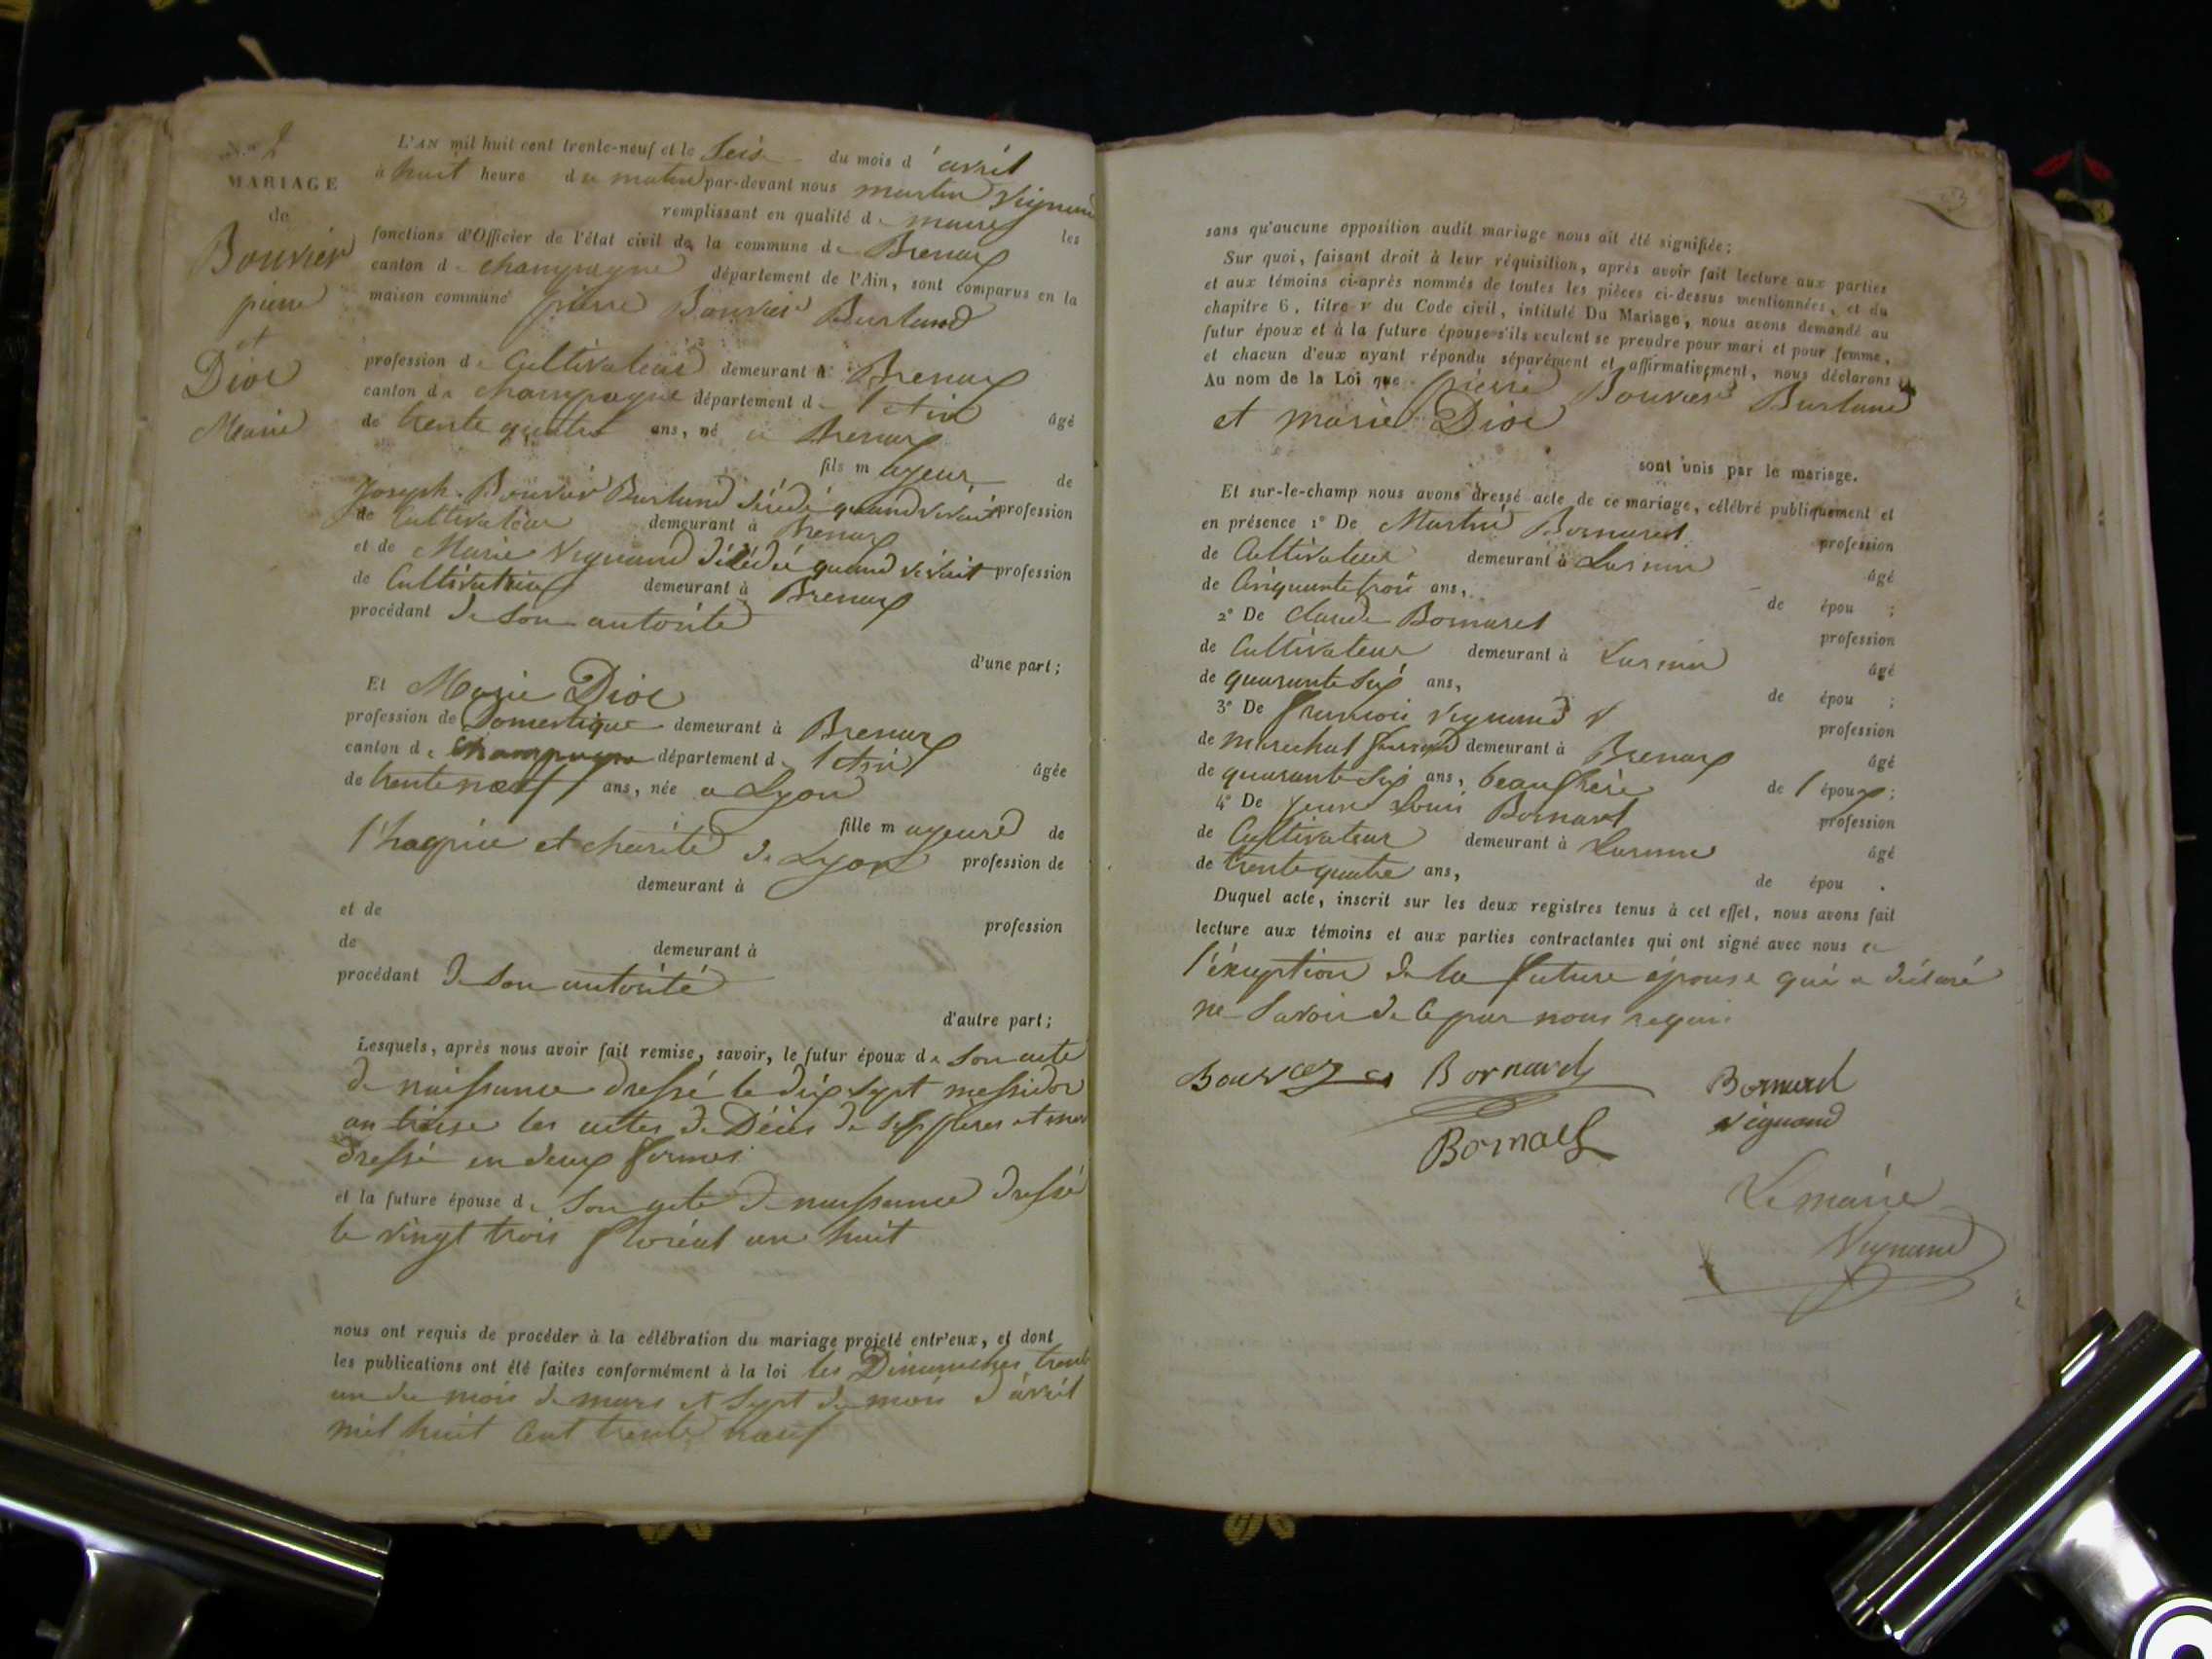 N.º 2
MARIAGE
de
Bouvier
pierre
et
Dioc
Marie
L'AN mil huit cent trente-neuf et le seis du mois d'avril
à huit heure du matin par-devant nous martin Vignand
remplissant en qualité de maire les
fonctions d'Officier de l'état civil de la commune de Brenaz
canton de champagne département de l'Ain, sont comparus en la
maison commune pierre Bouvier Burland
profession de Cultivateur demeurant à Brenaz
canton de champagne département de l'Ain âgé
de trente quatre ans, né a Brenaz
fils mayeur de
Joseph Bouvier Burland décédé quand vivait profession
de Cultivateur demeurant à Brenaz
et de Marie Vignand décédée quand vivait profession
de Cultivatrice demeurant à Brenaz
procédant de son autorité
d'une part;
Et Marie Dioc
profession de Domestique demeurant à Brenaz
canton de champagne département de l'Ain âgée
de trente neuf ans, née a Lyon
fille mayeure de
l'hospice et charité de Lyon profession de
demeurant à
et de profession
de demeurant à
procédant de son autorité
d'autre part;
Lesquels, après nous avoir fait remise, savoir, le futur époux de son acte
de naissance dressé le dix sept messidor
an treise les actes de Décès de ses pères et mer
dressé en deux formes
et la future épouse de son acte de naissance dressé
le vingt trois floréal an huit
nous ont requis de procéder à la célébration du mariage projeté entr'eux, et dont
les publications ont été faites conformément à la loi les Dimanches trente
un du mois de mars et sept du mois d'avril
mil huit cent trente neuf
sans qu'aucune opposition audit mariage nous ait été signifiée;
Sur quoi, faisant droit à leur réquisition, après avoir fait lecture aux parties
et aux témoins ci-après nommés de toutes les pièces ci-dessus mentionnées, et du
chapitre 6, titre v du Code civil, intitulé Du Mariage, nous avons demandé au
futur époux et à la future épouse s'ils veulent se prendre pour mari et pour femme,
et chacun d'eux ayant répondu séparément et affirmativement, nous déclarons
Au nom de la Loi que pierre Bouvier Burland
et marie Dioc
sont unis par le mariage.
Et sur-le-champ nous avons dressé acte de ce mariage, célébré publiquement et
en présence 1º De Martin Bornaret profession
de Cultivateur demeurant à âgé
de Cinquante trois ans, de épou ;
2º De Claude Bornaret profession
de Cultivateur demeurant à âgé
de quarante six ans, de épou ;
3º De francois Vignand profession
de marechal demeurant à Brenaz âgé
de quarante six ans, beaufrère de l'époux ;
4º De Jean Louis Bornard profession
de Cultivateur demeurant à âgé
de trente quatre ans, de épou .
Duquel acte, inscrit sur les deux registres tenus à cet effet, nous avons fait
lecture aux témoins et aux parties contractantes qui ont signé avec nous a
l'éxeption de la future épouse qui a déclaré
ne savoir de ce par nous requi
Bouvier Bornard Bornard
Bornard Vignand
Le maire
Vignand